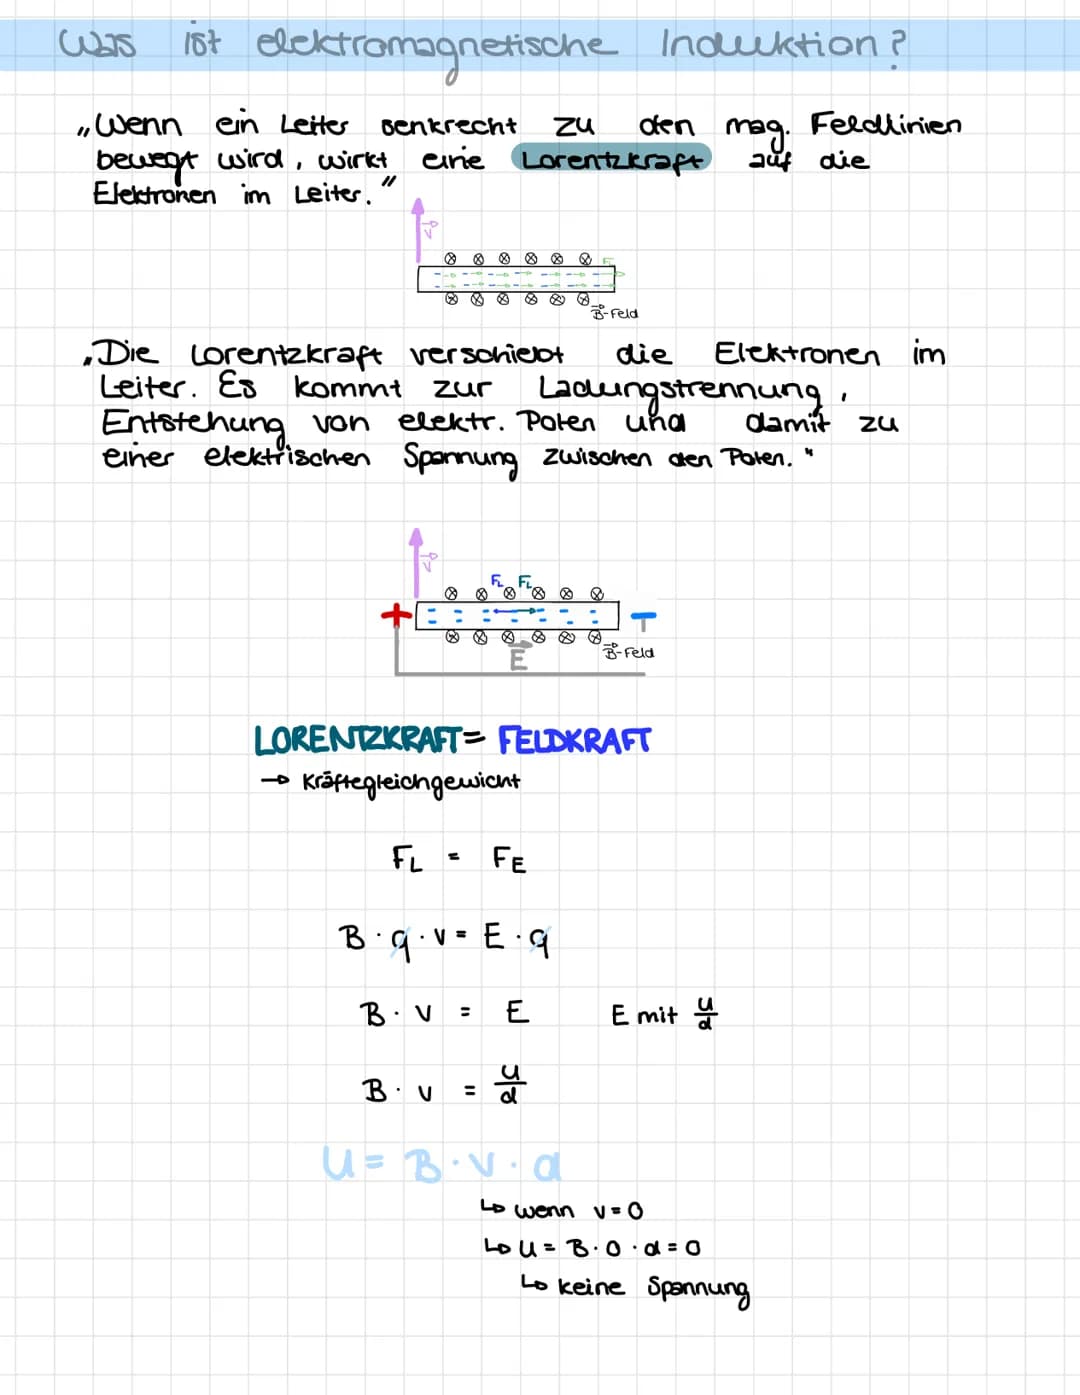 Was ist elektromagnetische Induktion?
„Wenn ein Leiter senkrecht zu den mag. Feldlinien
bewegt wird, wirkt eine Lorentzkraft auf die
Elektronen im Leiter."
v
⊗ ⊗ ⊗ ⊗ ⊗ ⊗ F
⊗ ⊗ ⊗ ⊗ ⊗ ⊗ B-Feld
„Die Lorentzkraft verschiebt die Elektronen im
Leiter. Es kommt zur Ladungstrennung,
Entstehung von elektr. Polen und damit zu
einer elektrischen Spannung zwischen den Polen."
v
FL FL
+ -
B-Feld
E
LORENTZKRAFT = FELDKRAFT
→ Kräftegleichgewicht
FL = FE
B · q · v = E · q
B · v = E E mit U/d
B · v = U/d
U = B · v · d
↳ wenn v = 0
↳ U = B · 0 · d = 0
↳ keine Spannung